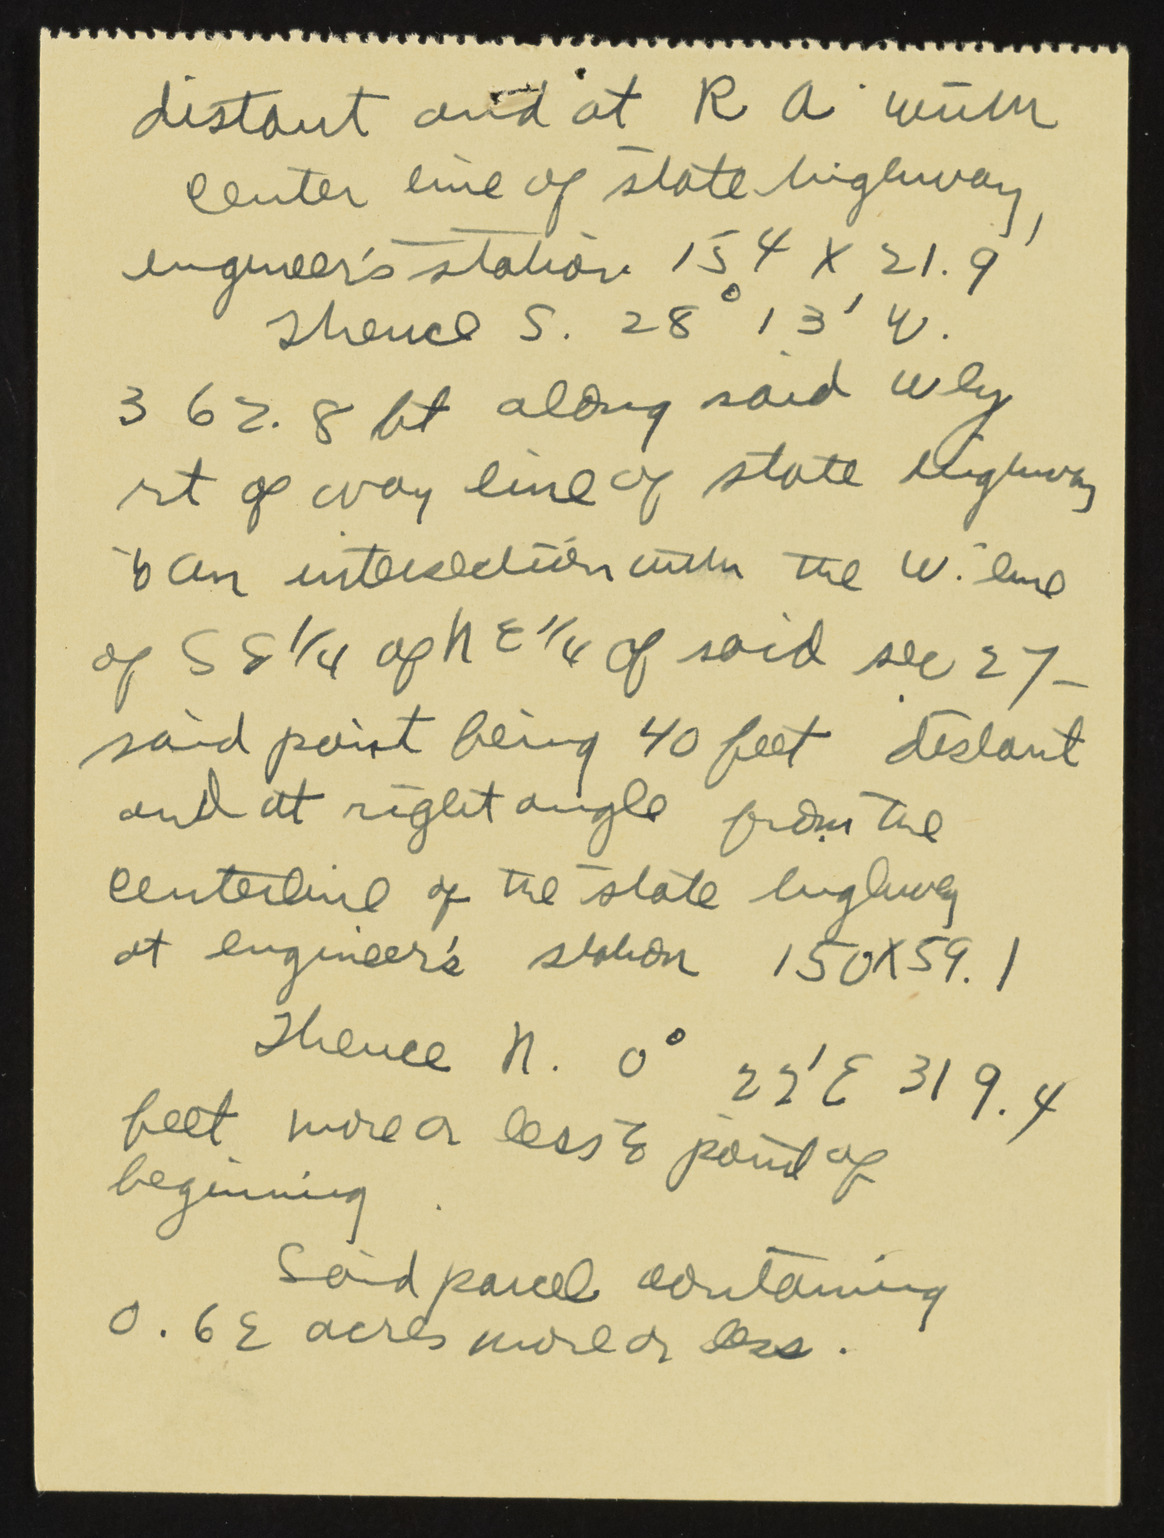 distant and at R A with
center line of state highway,
engineer's station 154 X 21.9'
Thence S. 28° 13' W.
362.8 ft along said Wly
rt of way line of state highway
to an intersection with the W. line
of SE 1/4 of NE 1/4 of said sec 27 –
said point being 40 feet distant
and at right angle from the
centerline of the state highway
at engineer's station 150X59.1
Thence N. 0° 22' E 319.4
feet more or less to point of
beginning.
Said parcel containing
acres more or less.